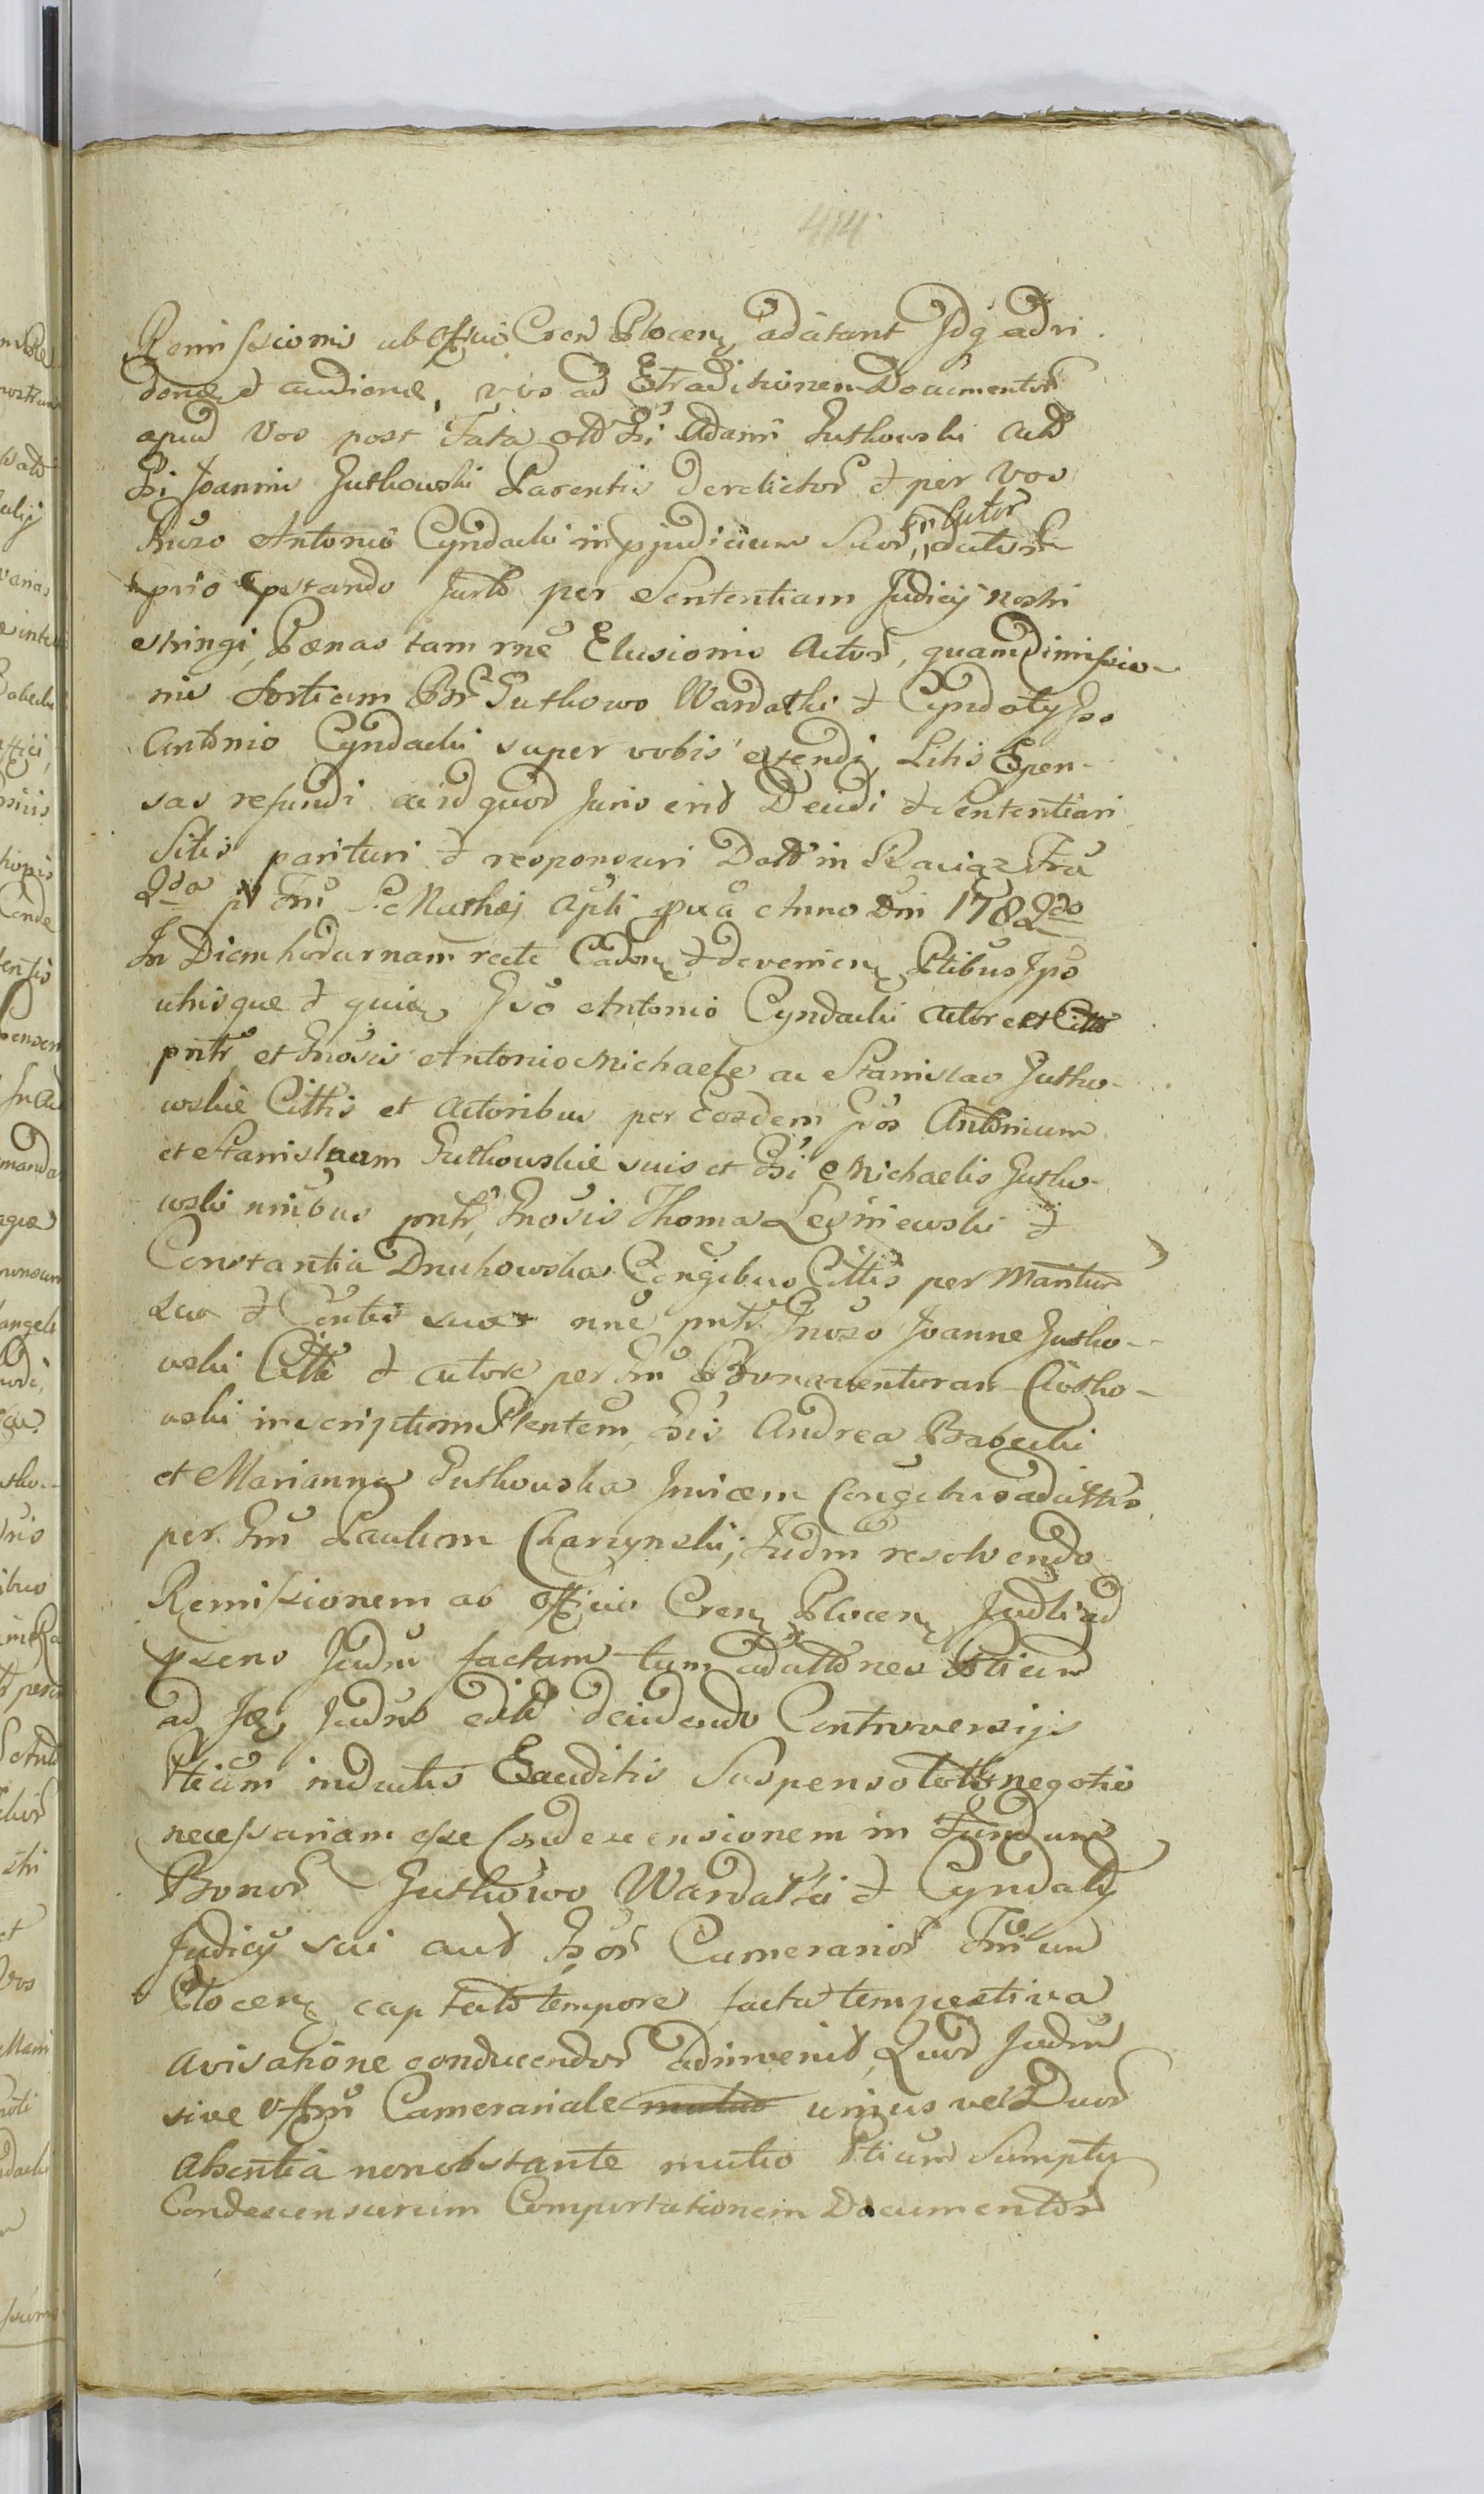 414
Remissionis ab Offcio Cren Plocen adcitant Jdq adri
done et audiene, vos ad Extraditionem Documentor
apud Vos post Fata olt Gsi Adami Gutkowski aut
Gsi Joannis Gutkowski Parentis derelictor et per Vos
Gnoso Antonio Cyndacki in pjudicium Suor, Autor
prio pstando Jurto per Sententiam Judicij nostri
stringi, Pænas tam rne Elusionis Actor, quam Dimissio-
nis Sortium Bnr Gutkowo Wardatki et Cyndaty Gso
Antonio Cyndacki super vobis extendi, Litis Expen-
sas refundi ac id quod Juris erit Decidi et Sententiari
Sitis parituri et responsuri Datt in Raciąz Fra
2da p Fm S. Mathæj Apli pxa Anno Dni 1782do
In Diem hodiernam recte Caden et devenien Ptibus Ipso
utrisque et quie Gso Antonio Cyndacki Actore et Citto
pntr et Gnosis Antonio Michaele ac Stanislao Gutko-
wskie Cittis et Actoribus per Eosdem Gsos Antonium
et Stanislaum Gutkowskie suis et Gsi Michaelis Gutko-
wski nnibus pntr, Gnosis Thoma Leśniewski et
Constantia Druhowska Congibus Cittis per Maritum
suo et Contis suæ nne pntr Gnoso Joanne Gutko-
wski Citto et Actore per Gm Bonawenturam Ciosko-
wski inscriptum Plentem, Gsis Andrea Babecki
et Marianna Gutkowska Invicem Congibus adcittis
per Gm Paulum Charzynski; Judm resolvendo
Remissionem ab Officio Cren Plocen Judli ad
psens Judm factam tum adcittones Ptium
ad Judm edit decidendo Controversijs
Ptium inductis Exauditis Suspenso toto negotio
necessariam esse Condescensionem in Fundum
Bonor Gutkowo Wardatki et Cyndaty
Judicij sui aut Gsor Camerarior Trium
Plocen captato tempore facta tempestiva
Avisatione conducendor adinvenit, Quod Judm
sive Offm Camerariale unius vel Duor
Absentia nonobstante mutuo Ptium Sumptu
Condescensurum Comportationem Documentor